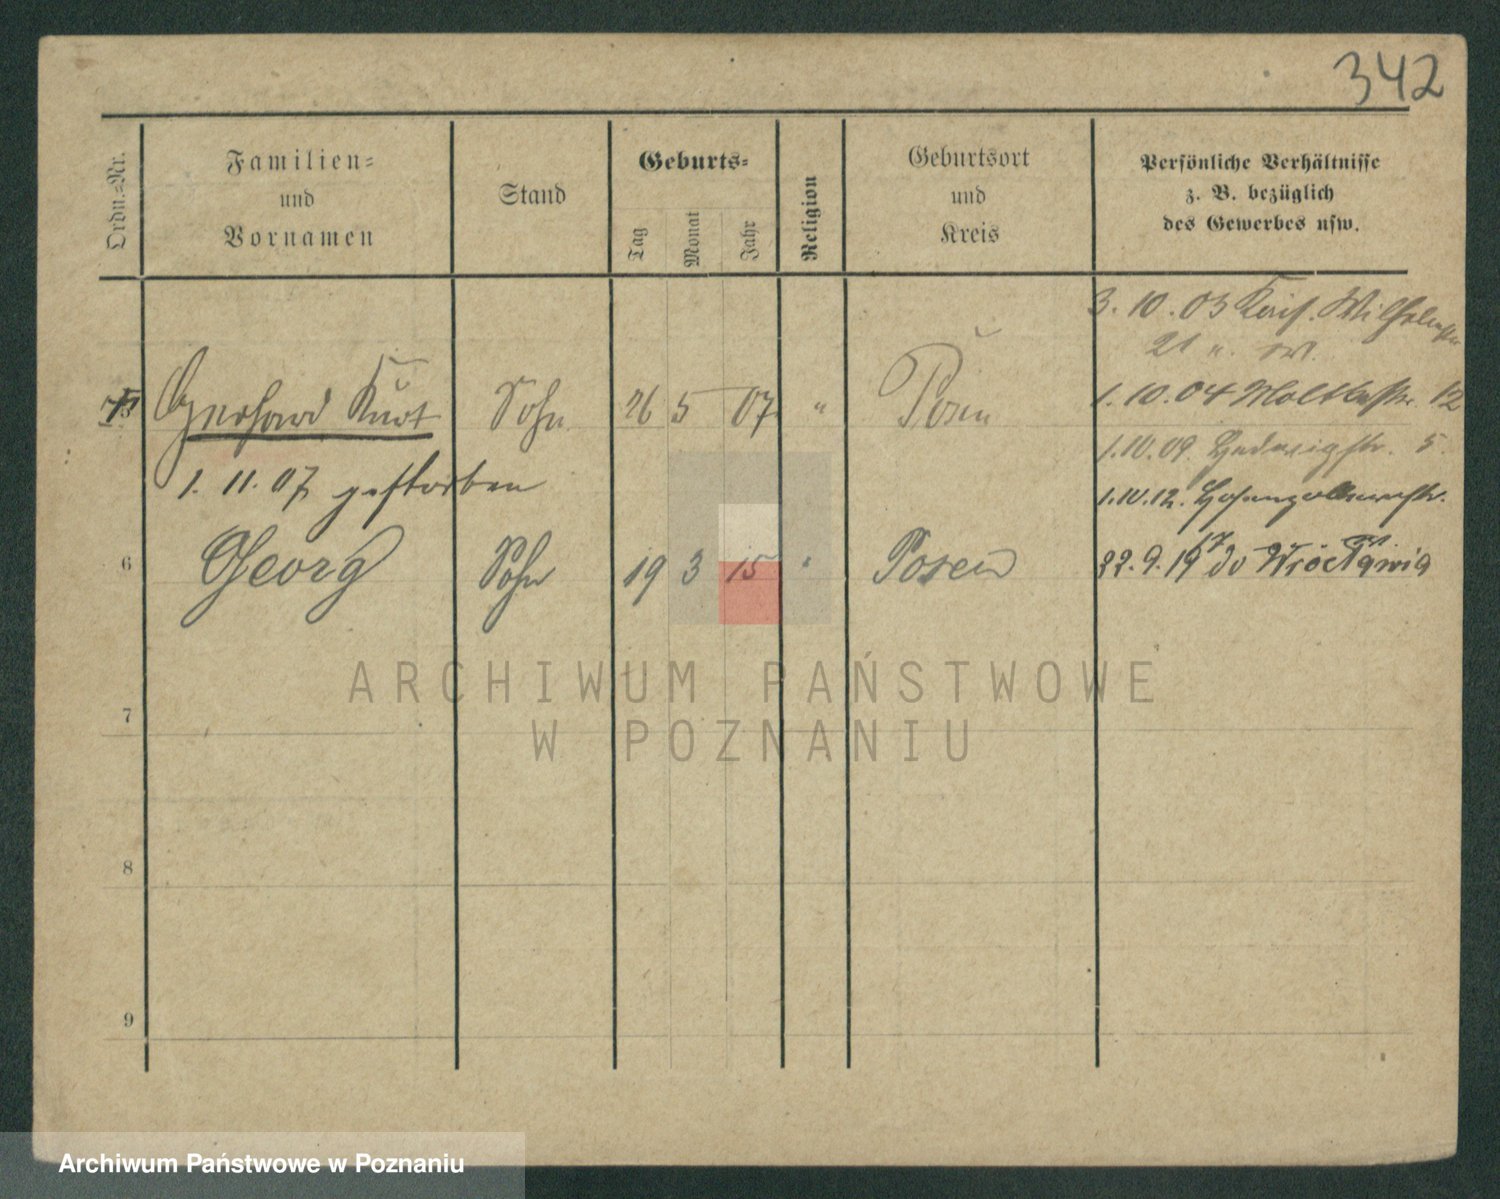 342
Ordn.-Nr.
Familien-
und
Vornamen
Stand
Geburts-
Tag
Monat
Jahr
Religion
Geburtsort
und
Kreis
Persönliche Verhältnisse
z. B. bezüglich
des Gewerbes usw.
3. 10. 03 Wilhelmstr
21
5 Gerhard Kurt Sohn 26 5 07 " Posen
1. 10. 04 Moltkestr. 12
1. 10. 09. Hedwigstr. 5.
1. 11. 07 gestorben
1. 10. 12. Hohenzollernstr.
6 Georg Sohn 19 3 15 " Posen
22. 9. 19 do Wrocławia
ARCHIWUM PAŃSTWOWE
W POZNANIU
7
8
9
Archiwum Państwowe w Poznaniu